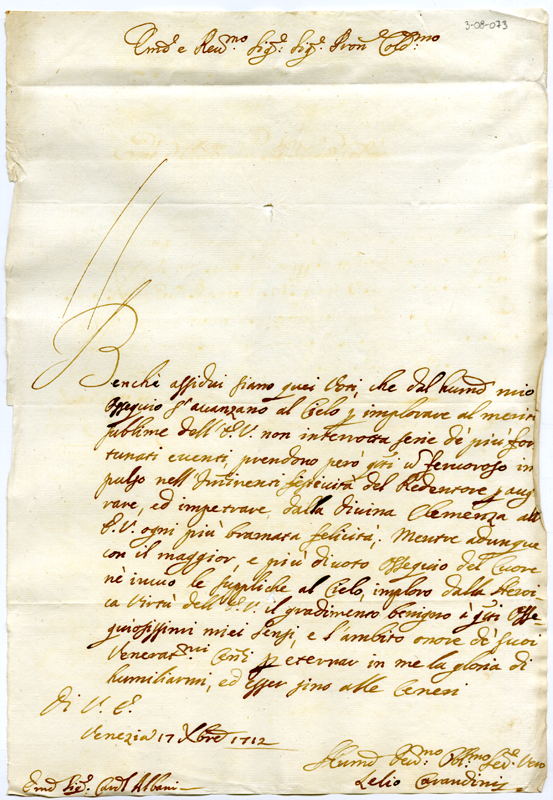 3-08-073
Em.º e Rev.mo Sig.r Sig.r Pron.e Col.mo
Benchè assidui siano quei Voti, che dal humil mio
ossequio s' avanzano al Cielo p implorare al merito
sublime dell' E.V. non interrotta serie de' più for
tunati eventi, prendono però q.sti un fervoroso im
pulso nell' Imminenti festività del Redentore p augu
rare, ed impetrare dalla Divina Clemenza all'
E.V. ogni più bramata felicità; Mentre adunque
con il maggior, e più divoto ossequio del Cuore
nè invio le suppliche al Cielo, imploro dalla Heroi
ca Virtù dell' E.V. il gradimento benigno à q.sti osse
quiosissimi miei sensi, e l'ambito onore de' suoi
Venerat.mi Cenni p eternar in me la gloria di
humiliarmi, ed esser sino alle Ceneri
Di V. E.
Venezia 17 Xbre 1712
Humil.o Dev.mo Obl.mo Ser.e Vero
Lelio
Em.o Sig.r Card. Albani